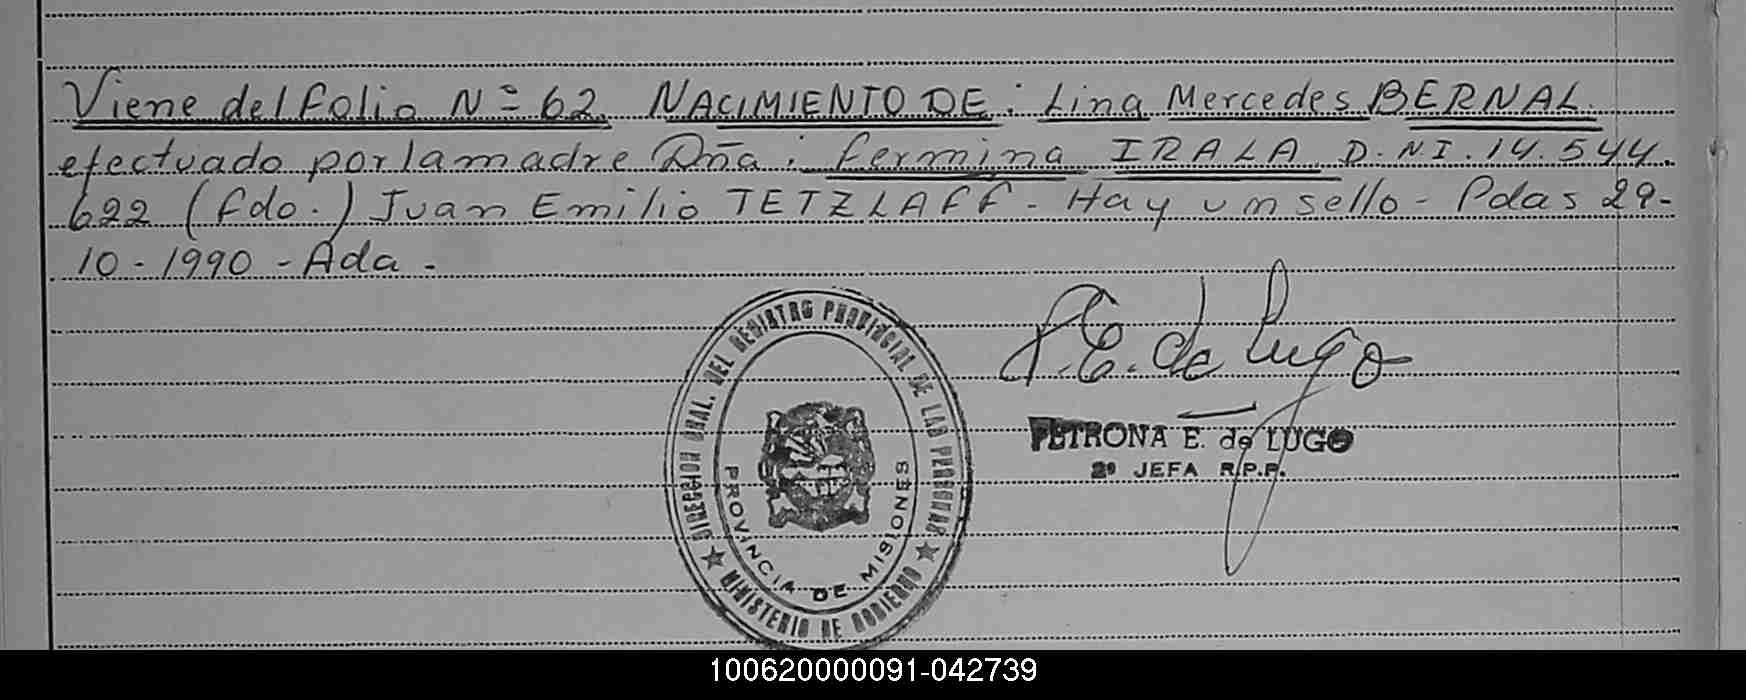 Viene del Folio N= 62 NACIMIENTO DE: Lina Mercedes BERNAL.
efectuado por la madre Dña: Fermina IRALA D.N.I. 14.544.
622 (Fdo.) Juan Emilio TETZLAFF - Hay un sello - Pdas 29-
10-1990 - Ada -
P.E. de Lugo
PETRONA E. de LUGO
2º JEFA R.P.P.
DIRECCION GRAL. DEL REGISTRO PROVINCIAL DE LAS PERSONAS
PROVINCIA DE MISIONES
MINISTERIO DE GOBIERNO
100620000091-042739